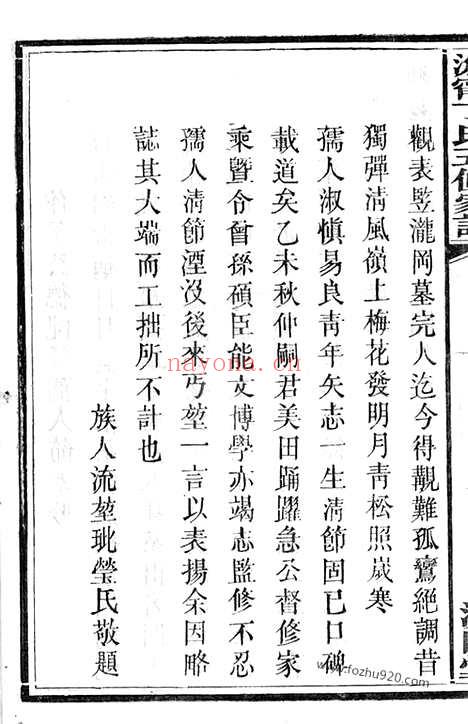 觀表豎瀧岡墓完人迄今得覩難孤鸞絶調昔
獨彈清風嶺上梅花發明月青松照嵗寒
孺人淑愼易良青年矢志一生清節固已口碑
載道矣乙未秋仲嗣君美田踊躍急公督修家
乘暨令曾孫碩臣能文博學亦竭志監修不忍
孺人清節湮没後來丐堃一言以表揚余因略
誌其大端而工拙所不計也
族人流堃玭瑩氏敬題
nayona.cn
www.fozhu920.com